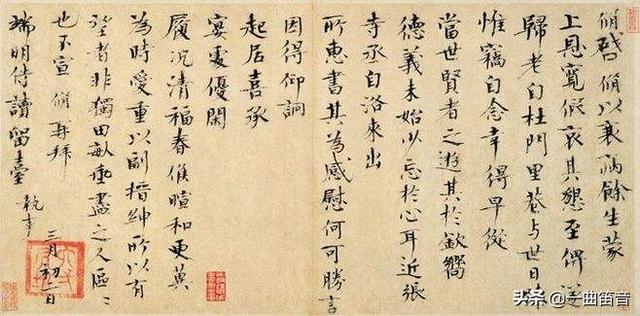 脩啓脩以衰病餘生蒙
上恩寬假哀其懇至俾遂
歸老自杜門里巷与世日疎
惟竊自念幸得早從
當世賢者之遊其於欽嚮
德義未始少忘於心耳近張
寺丞自洛來出
所惠書其為感慰何可勝言
因得仰詢
起居喜承
宴處優閑
履況清福春候暄和更冀
為時愛重以副搢紳所以有
望者非獨田畝垂盡之人區〻
也不宣 脩再拜
端明侍讀留臺執事
三月初二日
头条 @一曲笛音